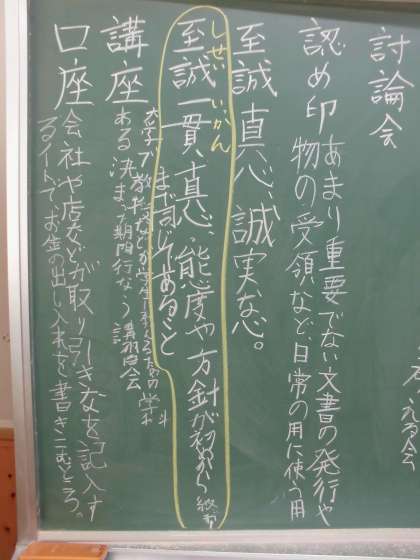 討論会
える会
認め印 あまり重要でない文書の発行や
物の受領など、日常の用に使う用
至誠 真心、誠実な心。
しせい いかん
至誠一貫、真心、態度や方針が初めから終
まで同じであること
講座 大学で教授などが学生に教えるための学
ある決まった期間行なう講習会
口座 会社や店などが取り引きなを記入す
るノートでお金の出し入れを書きこむところ。